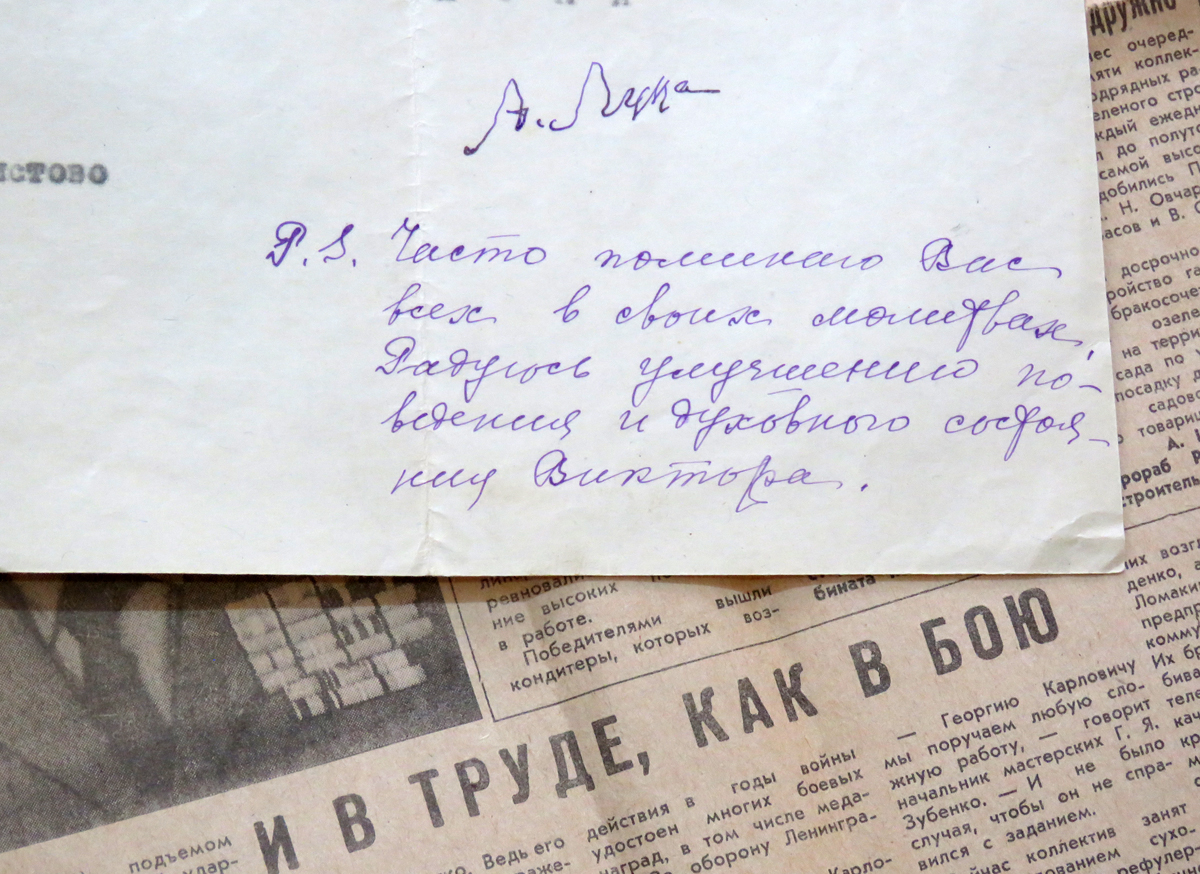 А. Лука
P.S. Часто поминаю Вас
всех в своих молитвах.
Радуюсь улучшению по-
ведения и духовного состоя-
ния Виктора.
дружно
очеред-
коллек-
ра-
стро-
до полуто-
самой высо-
добились
Н. Овчар-
асов и В.
досрочно
бракосочет-
озеле-
на терри-
сада по
посадку
садово-
товари-
А.
прораб
строитель-
ревновали
ние высоких
в работе.
Победителями вышли
кондитеры, которых воз-
бината
И В ТРУДЕ, КАК В БОЮ
подъемом
Ведь его
действия в годы войны
удостоен многих боевых
наград, в том числе меда-
оборону Ленингра-
— Георгию Карловичу
мы поручаем любую сло-
жную работу, — говорит
начальник мастерских Г. Я.
Зубенко. — И не было
случая, чтобы он не спра-
вился с заданием.
коллектив занят
сухо-
рефулер-
их возг-
денко,
Ломаки
предп-
комму-
Их бр-
бива-
теле-